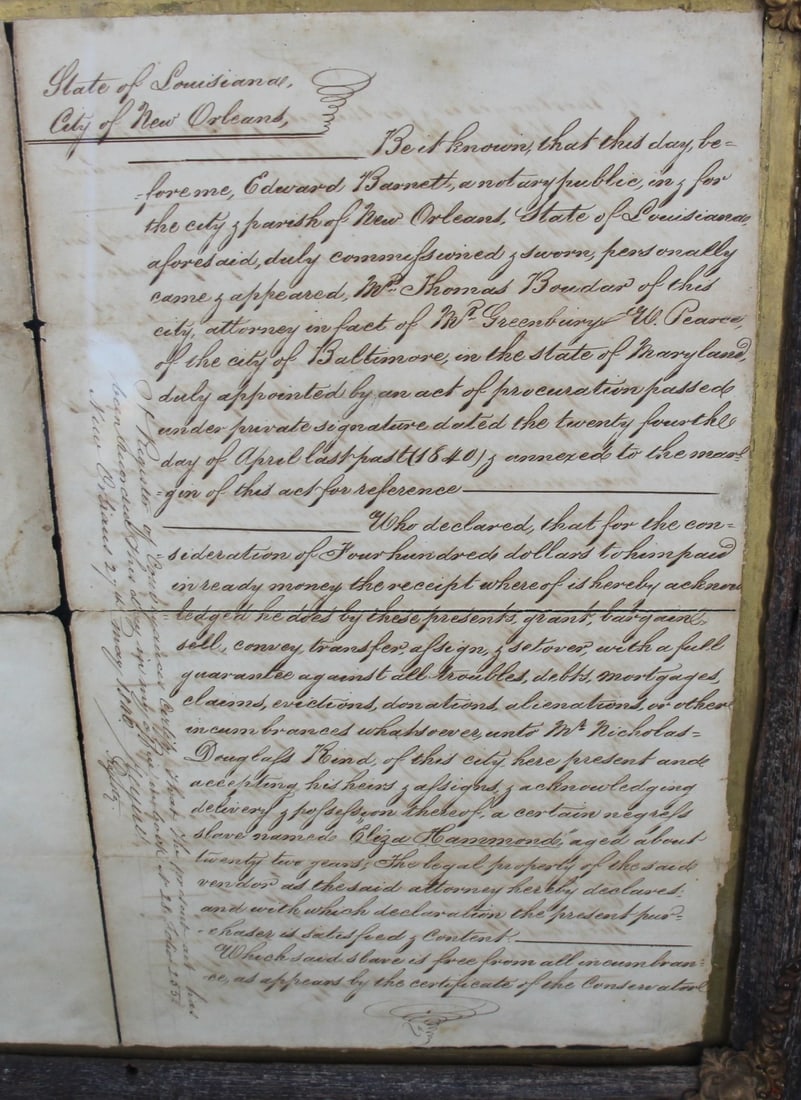 State of Louisiana,
City of New Orleans,
Be it known, that this day, be=
=fore me, Edward Barnett, a notary public, in & for
the city & parish of New Orleans, State of Louisiana,
aforesaid, duly commissioned & sworn, personally
came & appeared, Mr. Thomas Boudar of this
city, attorney in fact of Mr. Greenbury W. Pearce,
of the city of Baltimore, in the state of Maryland,
duly appointed by an act of procuration passed
under private signature dated the twenty fourth
day of April last past (1840) & annexed to the mar=
=gin of this act for reference
Who declared, that for the con=
sideration of Four hundred dollars to him paid
in ready money the receipt whereof is hereby acknow
ledged he does by these presents, grant, bargain,
sell, convey, transfer, assign, & set over, with a full
guarantee against all troubles, debts, mortgages,
claims, evictions, donations, alienations, or other
incumbrances whatsoever, unto Mr. Nicholas=
Douglass Kind, of this city, here present and
accepting, his heirs & assigns, & acknowledging
delivery & possession thereof, a certain negress
slave named Eliza Hammond, aged about
twenty two years; The legal property of the said
vendor as the said attorney hereby declares,
and with which declaration the present pur=
=chaser is satisfied & content.
Which said slave is free from all incumbran=
=ce, as appears by the certificate of the Conservator
Register of Conveyances certify that the present act has
been recorded this day in my office in book 28 folio
New Orleans 27th May 1840